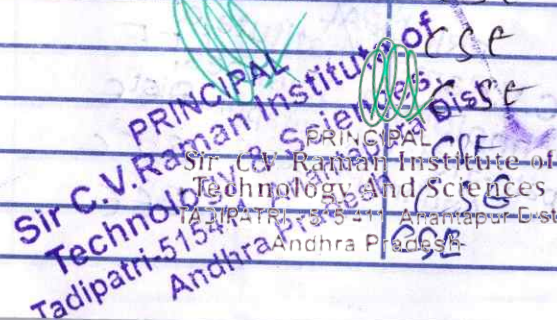 CSE
CSE
PRINCIPAL
Sir C.V.Raman Institute of
Technology & Sciences,
Tadipatri-515411, Anantapur Dist
Andhra Pradesh
PRINCIPAL
Sir C.V Raman Institute of
Technology And Sciences
TADIPATRI, 515 411 Anantapur Dist
Andhra Pradesh
CSE
CSE
CSE